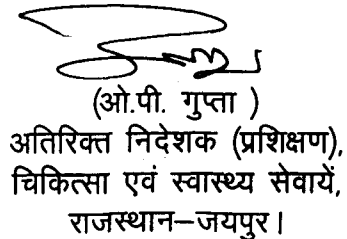 (ओ.पी. गुप्ता )
अतिरिक्त निदेशक (प्रशिक्षण),
चिकित्सा एवं स्वास्थ्य सेवायें,
राजस्थान–जयपुर।